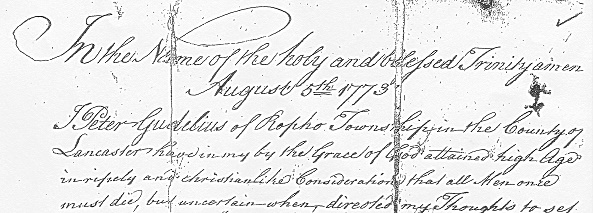 In the Name of the holy and blessed Trinity amen
August 5th 1773
I Peter Gudelius of Ropho Township in the County of
Lancaster have in my by the Grace of God attained high Age
in ripely and christianlike Consideration that all Men once
must died, but uncertain when, directed my Thoughts to set